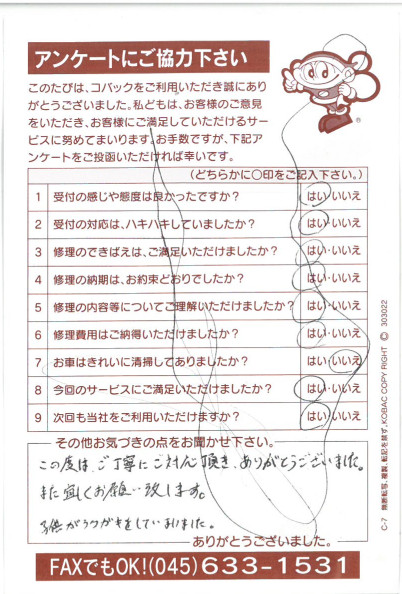 アンケートにご協力下さい
このたびは、コバックをご利用いただき誠にあり
がとうございました。私どもは、お客様のご意見
をいただき、お客様にご満足していただけるサー
ビスに努めてまいります。お手数ですが、下記ア
ンケートをご投函いただければ幸いです。
®
(どちらかに○印をご記入下さい。)
1 受付の感じや態度は良かったですか? はい・いいえ
2 受付の対応は、ハキハキしていましたか? はい・いいえ
3 修理のできばえは、ご満足いただけましたか? はい・いいえ
4 修理の納期は、お約束どおりでしたか? はい・いいえ
5 修理の内容等についてご理解いただけましたか? はい・いいえ
6 修理費用はご納得いただけましたか? はい・いいえ
7 お車はきれいに清掃してありましたか? はい・いいえ
8 今回のサービスにご満足いただけましたか? はい・いいえ
9 次回も当社をご利用いただけますか? はい・いいえ
その他お気づきの点をお聞かせ下さい。
この度は、ご丁寧にご対応頂き、ありがとうございました。
また宜しくお願い致します。
子供がラクガキをしていまいました。
ありがとうございました。
FAXでもOK!(045)633-1531
C-7 無断転写、複製、転記を禁ず。KOBAC COPY RIGHT © 303022